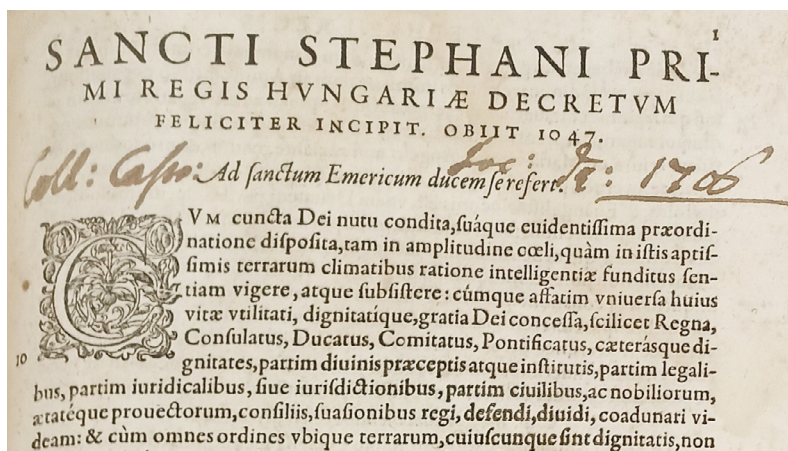 1
SANCTI STEPHANI PRI-
MI REGIS HVNGARIÆ DECRETVM
FELICITER INCIPIT. OBIIT 1047.
Coll: Casso: Soc: Je: 1706
Ad ſanctum Emericum ducem ſe refert.
CVM cuncta Dei nutu condita, ſuáque euidentiſſima præordi-
natione diſpoſita, tam in amplitudine cœli, quàm in iſtis aptiſ-
ſimis terrarum climatibus ratione intelligentiæ funditus ſen-
tiam vigere, atque ſubſiſtere: cúmque affatim vniuerſa huius
vitæ vtilitati, dignitatíque, gratia Dei conceſſa, ſcilicet Regna,
Conſulatus, Ducatus, Comitatus, Pontificatus, cæteráſque di-
10 gnitates, partim diuinis præceptis atque inſtitutis, partim legali-
bus, partim iuridicalibus, ſiue iuriſdictionibus, partim ciuilibus, ac nobiliorum,
ætatéque prouectorum, conſiliis, ſuaſionibus regi, defendi, diuidi, coadunari vi-
deam: & cùm omnes ordines vbique terrarum, cuiuſcunque ſint dignitatis, non